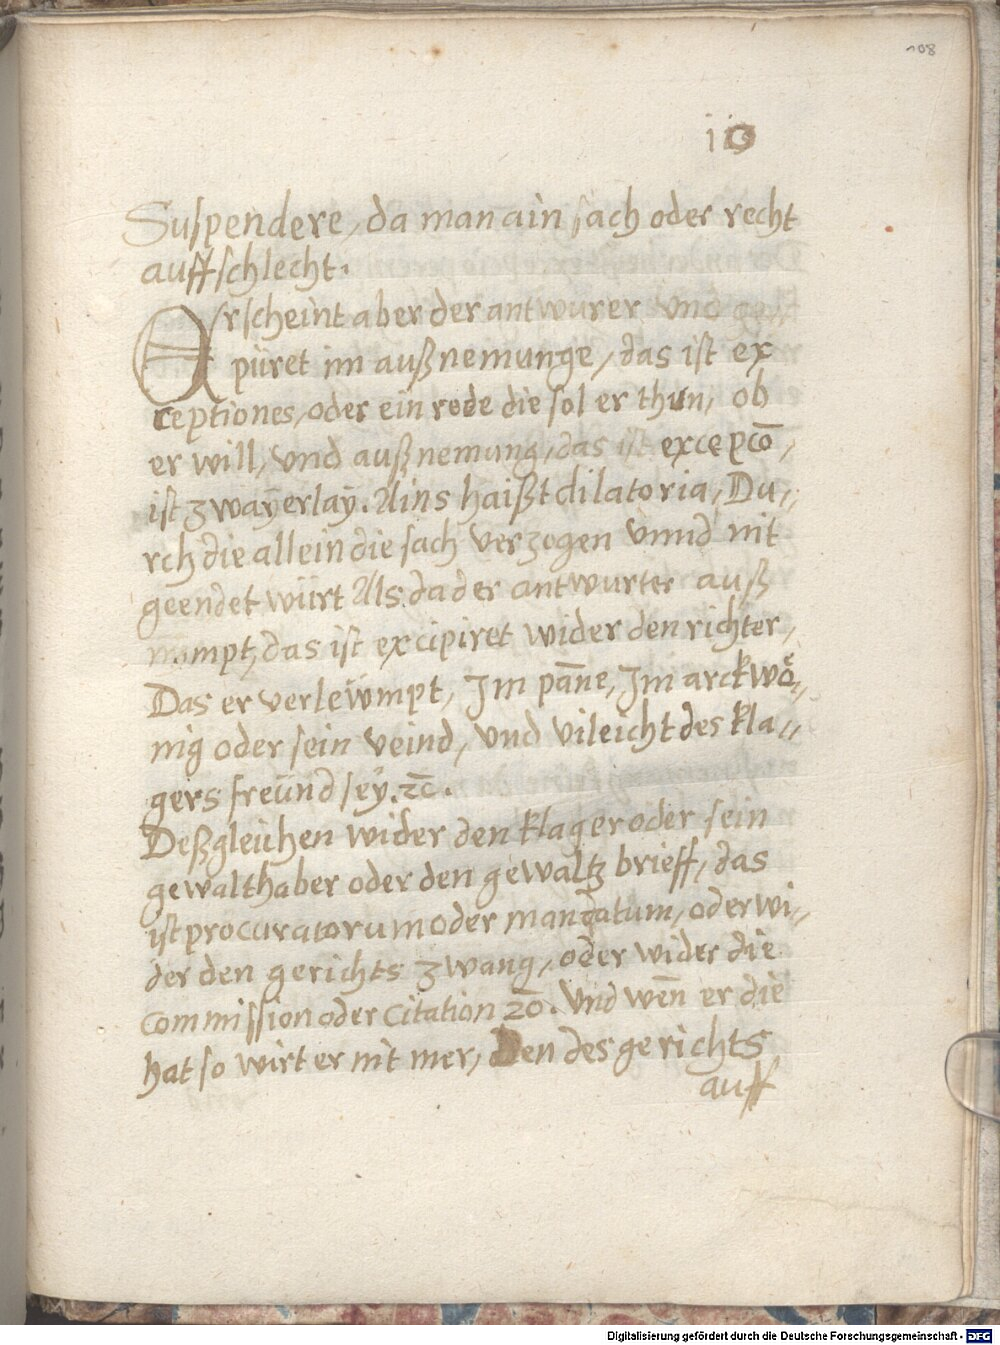 108
110
Suspendere, da man ain sach oder recht
auffschlecht.
Erscheint aber der antwurer vnd
püret im außnemunge, das ist ex
ceptiones, oder ein rede die sol er thun, ob
er will, vnd außnemung, das ist excepcō,
ist zwaÿerlaÿ. Ains haißt dilatoria, Du,,
rch die allein die sach verzogen vnnd nit
geendet würt Als da der antwurter auß
nimpt, das ist excipiret wider den richter,
Das er verleümpt, Im pāne, Im arckwö,,
nig oder sein veind, vnd vileicht des kla,,
gers freünd seÿ. ⁊c̄.
Deßgleichen wider den klager oder sein
gewalthaber oder den gewaltz brieff, das
ist procuratorum oder mandatum, oder wi,,
der den gerichts zwang, oder wider die
commission oder citation ⁊c̄. Vnd wēn er die
hat so wirt er nit mer, Den des gerichts
auff
Digitalisierung gefördert durch die Deutsche Forschungsgemeinschaft - DFG